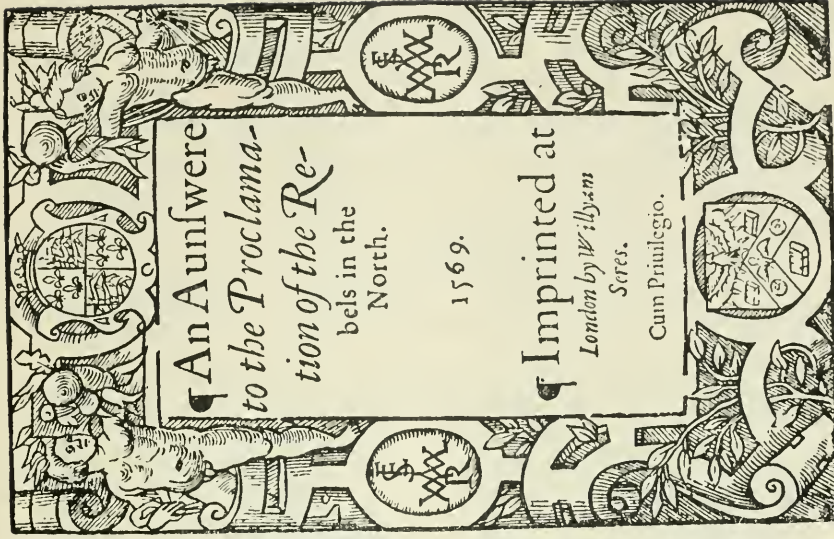 ¶ An Aunſwere
to the Proclama-
tion of the Re-
bels in the
North.
1569.
¶ Imprinted at
London by Willyam
Seres.
Cum Priuilegio.